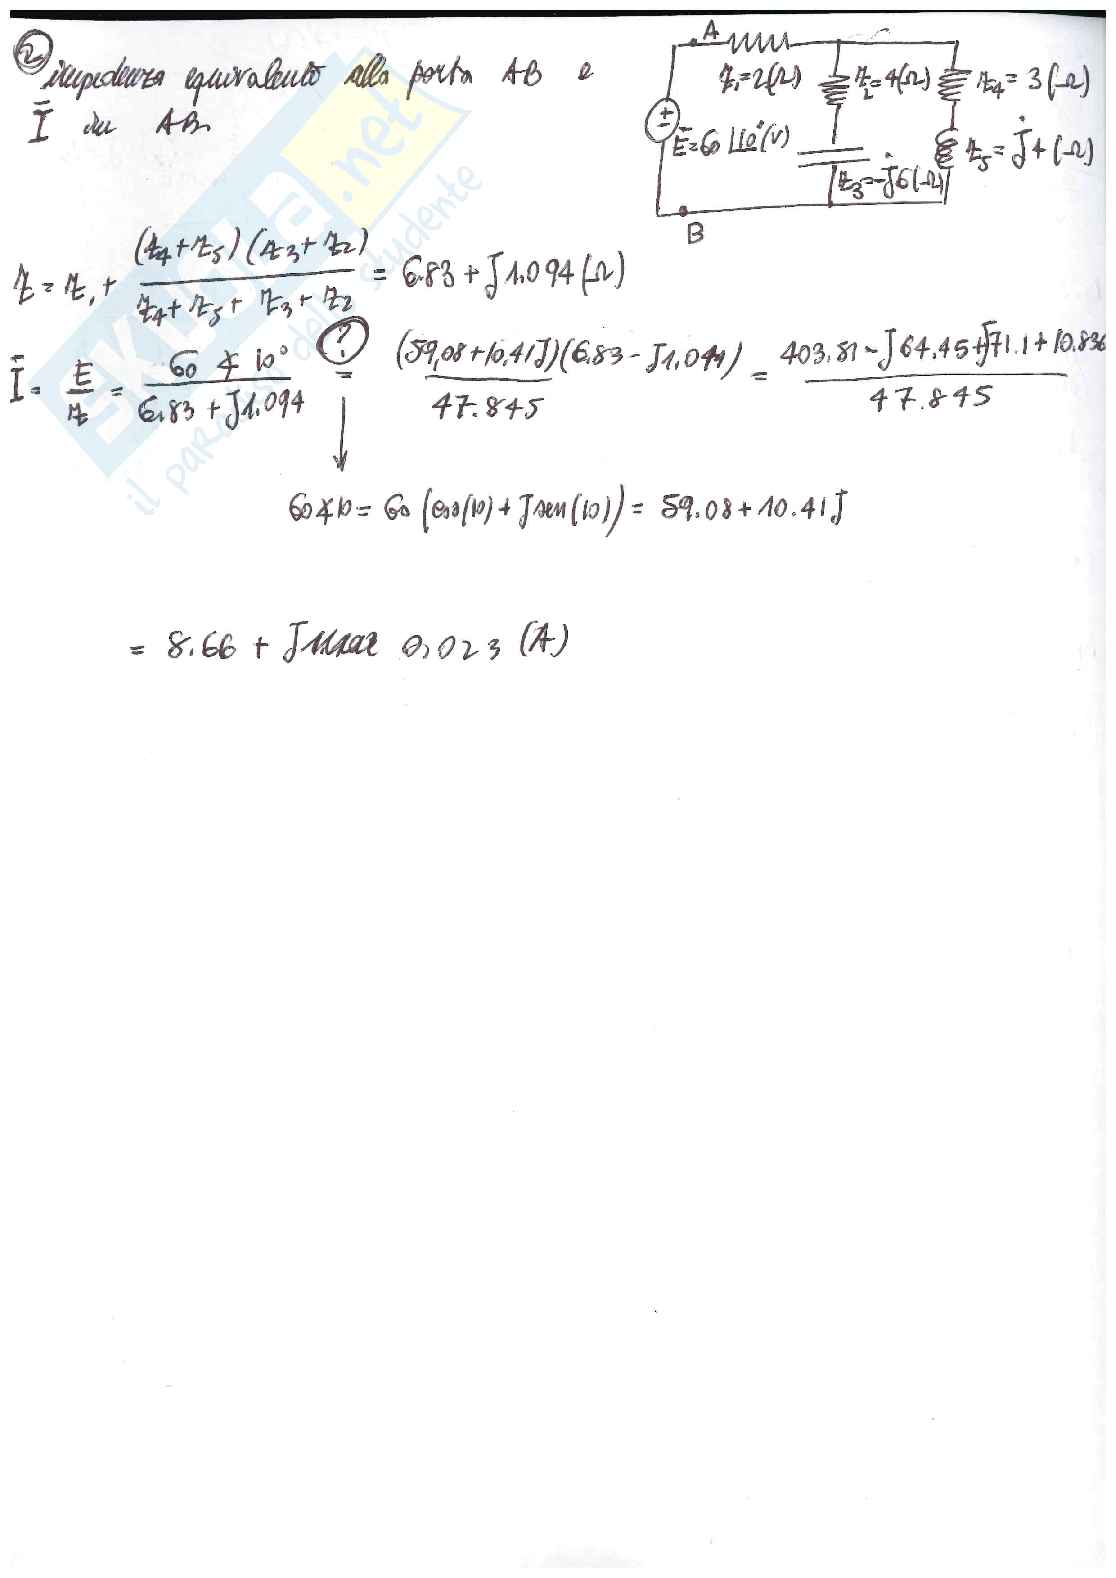 2 impedenza equivalente alla porta AB e
Ī in AB.
A
Z₁=2(Ω) Z₂=4(Ω) Z₄=3(Ω)
Ē=60 ∟10°(V) Z₃=-j6(Ω) Z₅=j4(Ω)
B
Z = Z₁ + (Z₄+Z₅)(Z₃+Z₂) / (Z₄+Z₅+Z₃+Z₂) = 6.83 + J1.094 (Ω)
Ī = E/Z = 60 ∡ 10° / (6.83 + J1.094) (?) = (59,08+10,41J)(6.83-J1.094) / 47.845 = (403.81-J64.45+J71.1+10.836) / 47.845
60∡10 = 60 (cos(10) + J sen(10)) = 59.08 + 10.41J
= 8.66 + J 0.023 (A)
SKUOLA.net
il paradiso dello studente